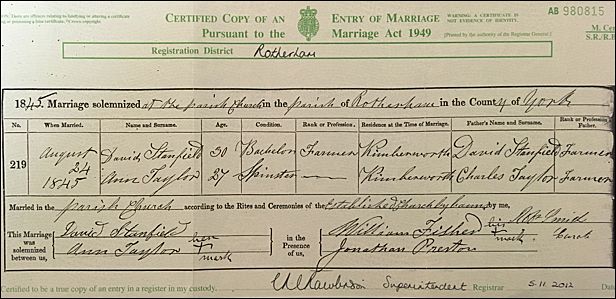 CERTIFIED COPY OF AN ENTRY OF MARRIAGE
WARNING: A CERTIFICATE IS NOT EVIDENCE OF IDENTITY.
AB 980815
Pursuant to the Marriage Act 1949
[Printed by the authority of the Registrar General]
M. Cer
S.R./R.B
Registration District Rotherham
1845. Marriage solemnized at the parish Church in the parish of Rotherham in the County of York
No. When Married. Name and Surname. Age. Condition. Rank or Profession. Residence at the Time of Marriage. Father's Name and Surname. Rank or Profession of Father.
219 August 24 1845 David Stanfield 30 Bachelor Farmer Kimberworth David Stanfield Farmer
Ann Taylor 27 Spinster — Kimberworth Charles Taylor Farmer
Married in the parish Church according to the Rites and Ceremonies of the Established Church by banns by me,
This Marriage was solemnized between us,
David Stanfield
Ann Taylor her + mark
in the Presence of us,
William Fisher his + mark
Jonathan Preston
Curate
Superintendent Registrar 5.11.2012
Certified to be a true copy of an entry in a register in my custody.